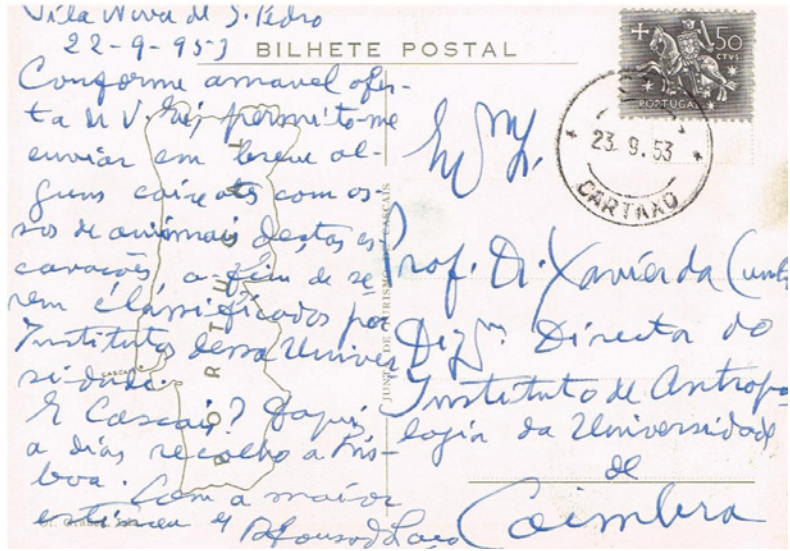 Vila Nova de S. Pedro
22-9-953
BILHETE POSTAL
Conforme amavel ofer-
ta de V. Ex., permito-me
enviar em breve al-
guns caixotes com os-
sos de animais destas es-
cavações, a-fim de se-
rem classificados por
Institutos dessa Univer
sidade.
E Cascais? Daqui
a dias recolho a Lis-
boa.
Com a maior
estima
Afonso do Paço
50
CTVS.
PORTUGAL
23. 9. 53
CARTAXO
Prof. Dr. Xavier da Cunha
Dig.mo Director do
Instituto de Antropo
logia da Universidade
de
Coimbra
PORTUGAL
CASCAIS
JUNTA DE TURISMO DE CASCAIS